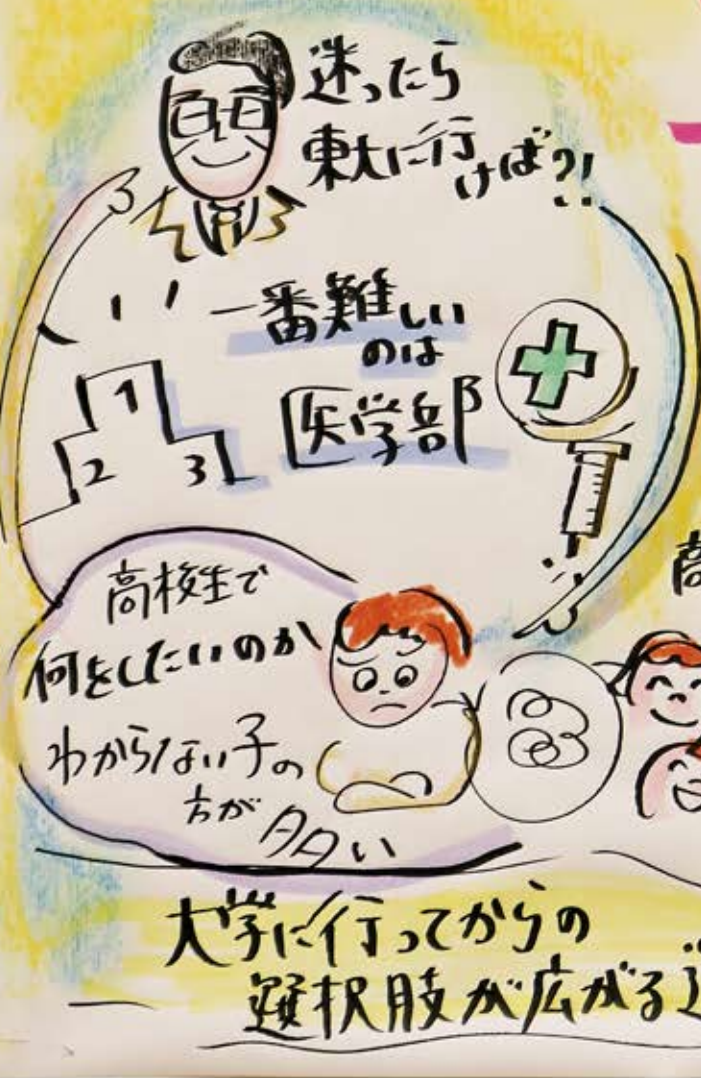 迷ったら
東大に行
けば?!
一番難しい
のは
医学部
1
2 3
高校生で
何をしたいのか
わからない子の
方が多い
大学に行ってからの
選択肢が広がる